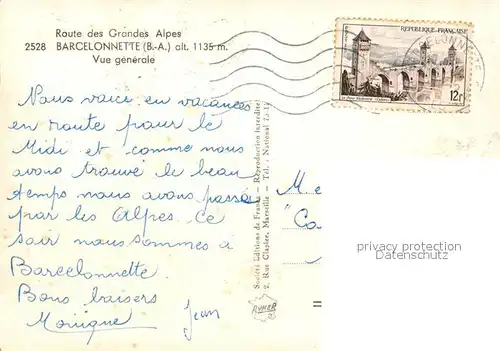 Route des Grandes Alpes
2528 BARCELONNETTE (B.-A.) alt. 1135 m.
Vue générale
RÉPUBLIQUE FRANÇAISE
12f
Nous voici en vacances
en route pour le
Midi et comme nous
avons trouvé le beau
temps nous avons passés
par les Alpes. Ce
soir nous sommes à
Barcelonnette.
Bons baisers
Monique Jean
Société Editions de France - Reproduction Interdite
2, Rue Clapier, Marseille - Tél. : National
RYNER
M. e
"Ca
privacy protection
Datenschutz